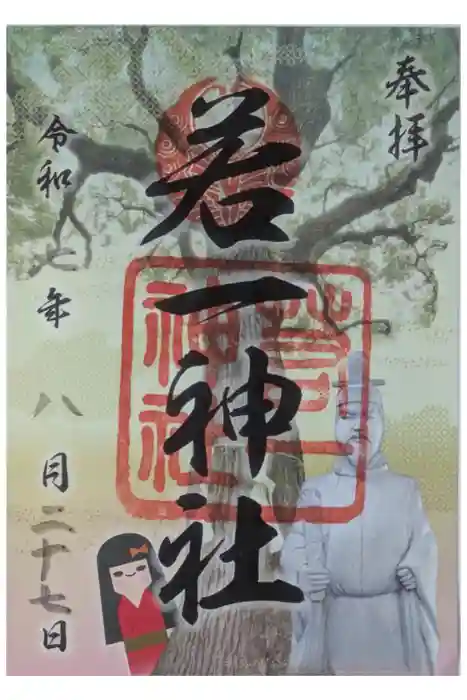 奉拝
若一神社
若一
神社
令和七年八月二十七日